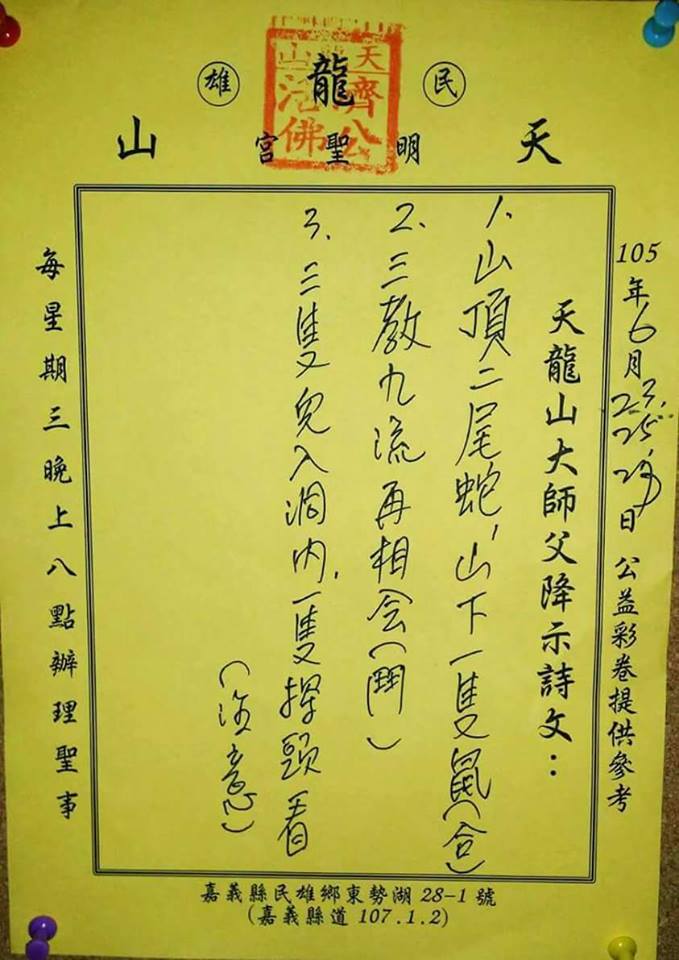 民雄
天龍山
明聖宮
天龍山
濟公活佛
105年6月23. 25. 日 公益彩卷提供參考
天龍山大師父降示詩文：
1. 山頂二尾蛇，山下一隻鼠(合)
2. 三教九流再相会(鬥)
3. 三隻兔入洞內，一隻探頭看
(注意)
每星期三晚上八點辦理聖事
嘉義縣民雄鄉東勢湖28-1號
(嘉義縣道107.1.2)